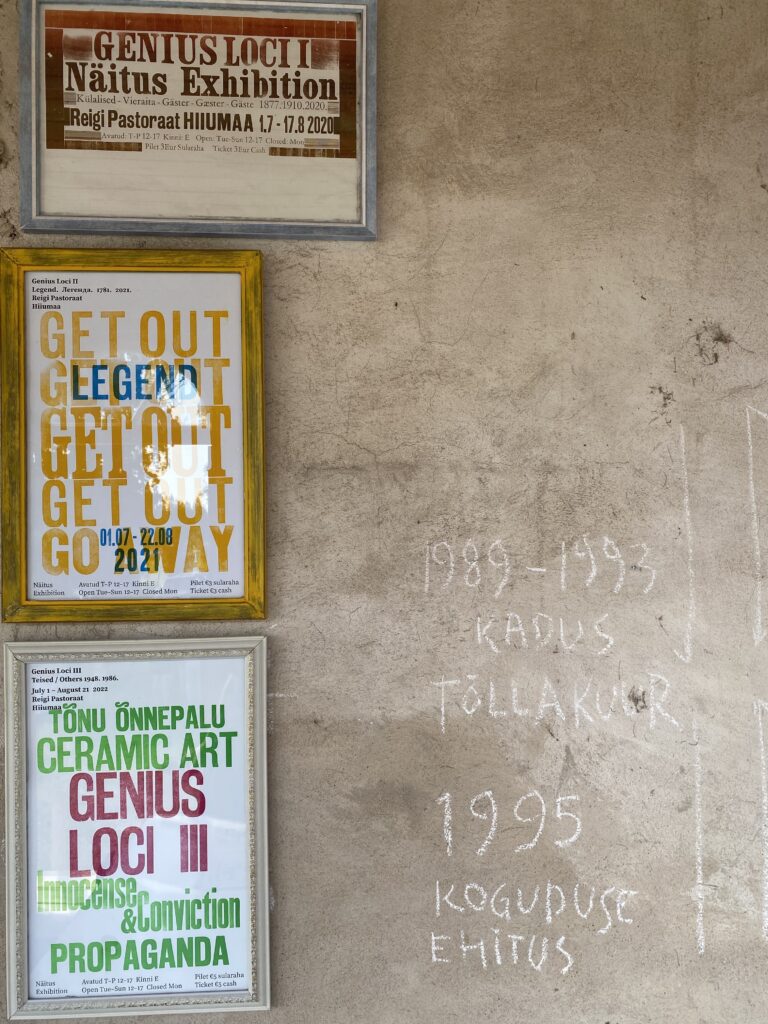 GENIUS LOCI I
Näitus Exhibition
Külalised - Vieraita - Gäster - Gæster - Gäste 1877.1910.2020.
Reigi Pastoraat HIIUMAA 1.7 - 17.8 2020
Avatud: T-P 12-17 Kinni: E Open: Tue-Sun 12-17 Closed: Mon
Pilet 3Eur Sularaha Ticket 3Eur Cash
Genius Loci II
Legend. Легенда. 1781. 2021.
Reigi Pastoraat
Hiiumaa
GET OUT
GET OUT
LEGEND
GET OUT
GET OUT
01.07 - 22.08
GO AWAY
2021
Näitus
Exhibition
Avatud T-P 12-17 Kinni E
Open Tue-Sun 12-17 Closed Mon
Pilet €3 sularaha
Ticket €3 cash
Genius Loci III
Teised / Others 1948. 1986.
July 1 – August 21 2022
Reigi Pastoraat
Hiiumaa
TÕNU ÕNNEPALU
CERAMIC ART
GENIUS
LOCI III
Innocense
&Conviction
PROPAGANDA
Näitus
Exhibition
Avatud T-P 12-17 Kinni E
Open Tue-Sun 12-17 Closed Mon
Pilet €5 sularaha
Ticket €5 cash
1989 - 1993
KADUS
TÕLLAKUUR
1995
KOGUDUSE
EHITUS